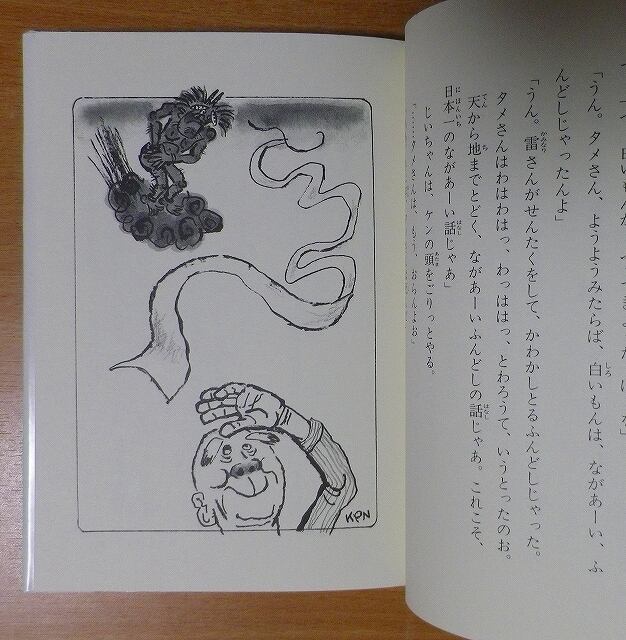 「うん。タメさん、ようようみたらば、白いもんは、ながあーい、ふ
んどしじゃったんよ」
「うん。雷さんがせんたくをして、かわかしとるふんどしじゃった。
タメさんはわはわはっ、わっははっ、とわろうて、いうとったのお。
天から地までとどく、ながあーいふんどしの話じゃあ。これこそ、
日本一のながあーい話じゃあ」
じいちゃんは、ケンの頭をごりっとやる。
「……タメさんは、もう、おらんよお
KPN